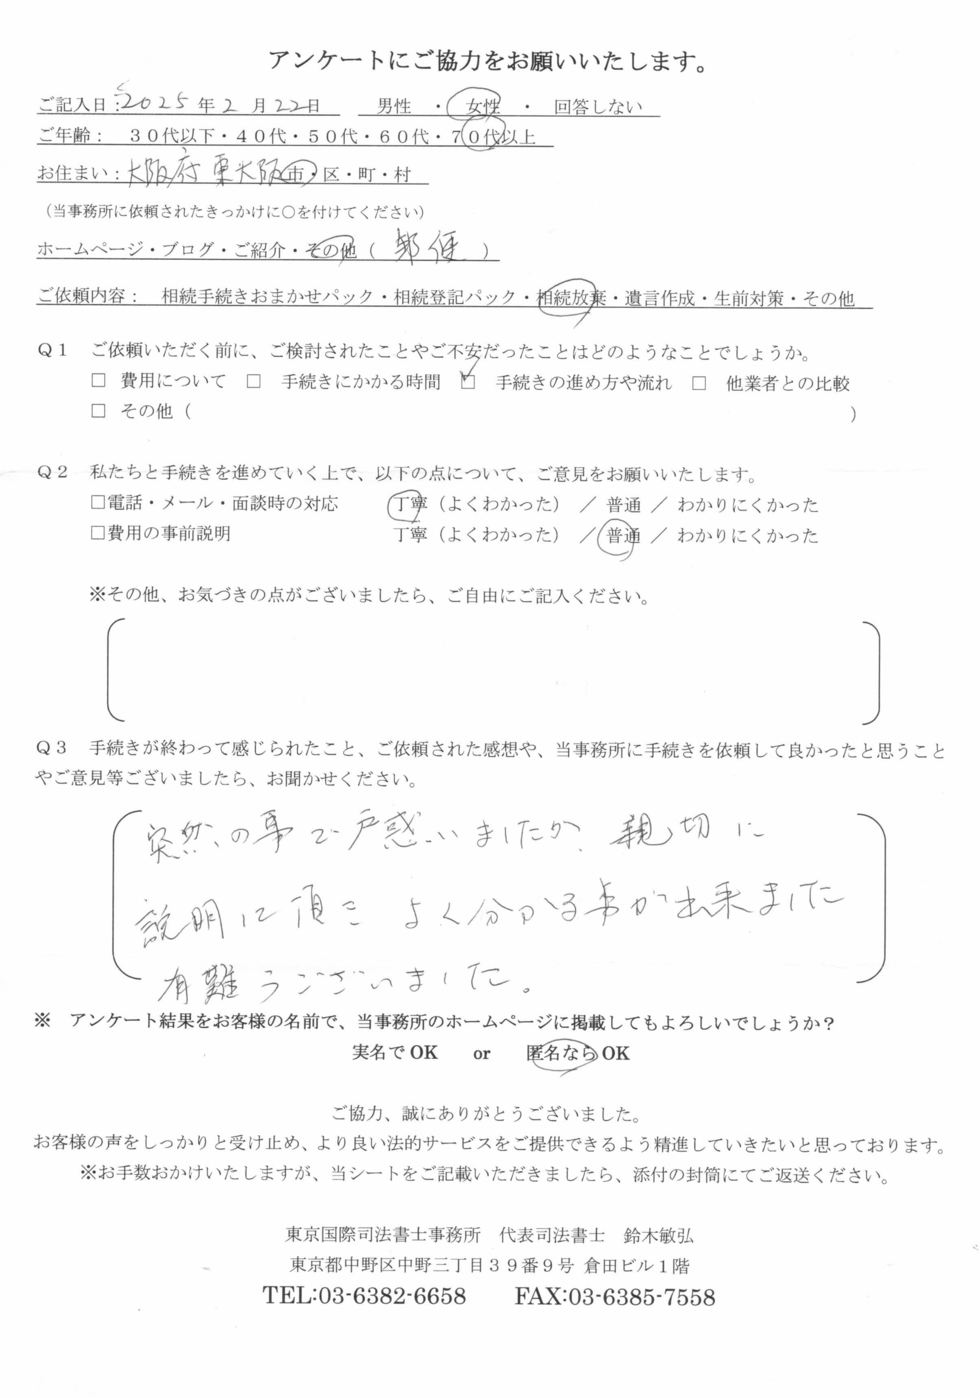 アンケートにご協力をお願いいたします。
ご記入日：2025年2月22日　男性　・　女性　・　回答しない
ご年齢：　３０代以下・４０代・５０代・６０代・７０代以上
お住まい：大阪府東大阪市・区・町・村
（当事務所に依頼されたきっかけに○を付けてください）
ホームページ・ブログ・ご紹介・その他（　郵便　）
ご依頼内容：　相続手続きおまかせパック・相続登記パック・相続放棄・遺言作成・生前対策・その他
Ｑ１　ご依頼いただく前に、ご検討されたことやご不安だったことはどのようなことでしょうか。
□　費用について　□　手続きにかかる時間　☑　手続きの進め方や流れ　□　他業者との比較
□　その他（　　　）
Ｑ２　私たちと手続きを進めていく上で、以下の点について、ご意見をお願いいたします。
□電話・メール・面談時の対応　丁寧（よくわかった）／ 普通 ／ わかりにくかった
□費用の事前説明　丁寧（よくわかった）／ 普通 ／ わかりにくかった
※その他、お気づきの点がございましたら、ご自由にご記入ください。
Ｑ３　手続きが終わって感じられたこと、ご依頼された感想や、当事務所に手続きを依頼して良かったと思うこと
やご意見等ございましたら、お聞かせください。
突然の事で戸惑いましたが、親切に
説明に頂き よく分かる事が出来ました
有難うございました。
※　アンケート結果をお客様の名前で、当事務所のホームページに掲載してもよろしいでしょうか？
実名でOK　or　匿名ならOK
ご協力、誠にありがとうございました。
お客様の声をしっかりと受け止め、より良い法的サービスをご提供できるよう精進していきたいと思っております。
※お手数おかけいたしますが、当シートをご記載いただきましたら、添付の封筒にてご返送ください。
東京国際司法書士事務所　代表司法書士　鈴木敏弘
東京都中野区中野三丁目３９番９号 倉田ビル１階
TEL:03-6382-6658　FAX:03-6385-7558